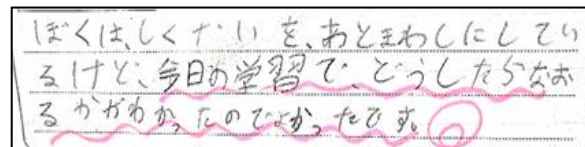 ぼくは、しくだいを、あとまわしにしてい
るけど、今日の学習で、どうしたらなお
るかがわかったのでよかったです。